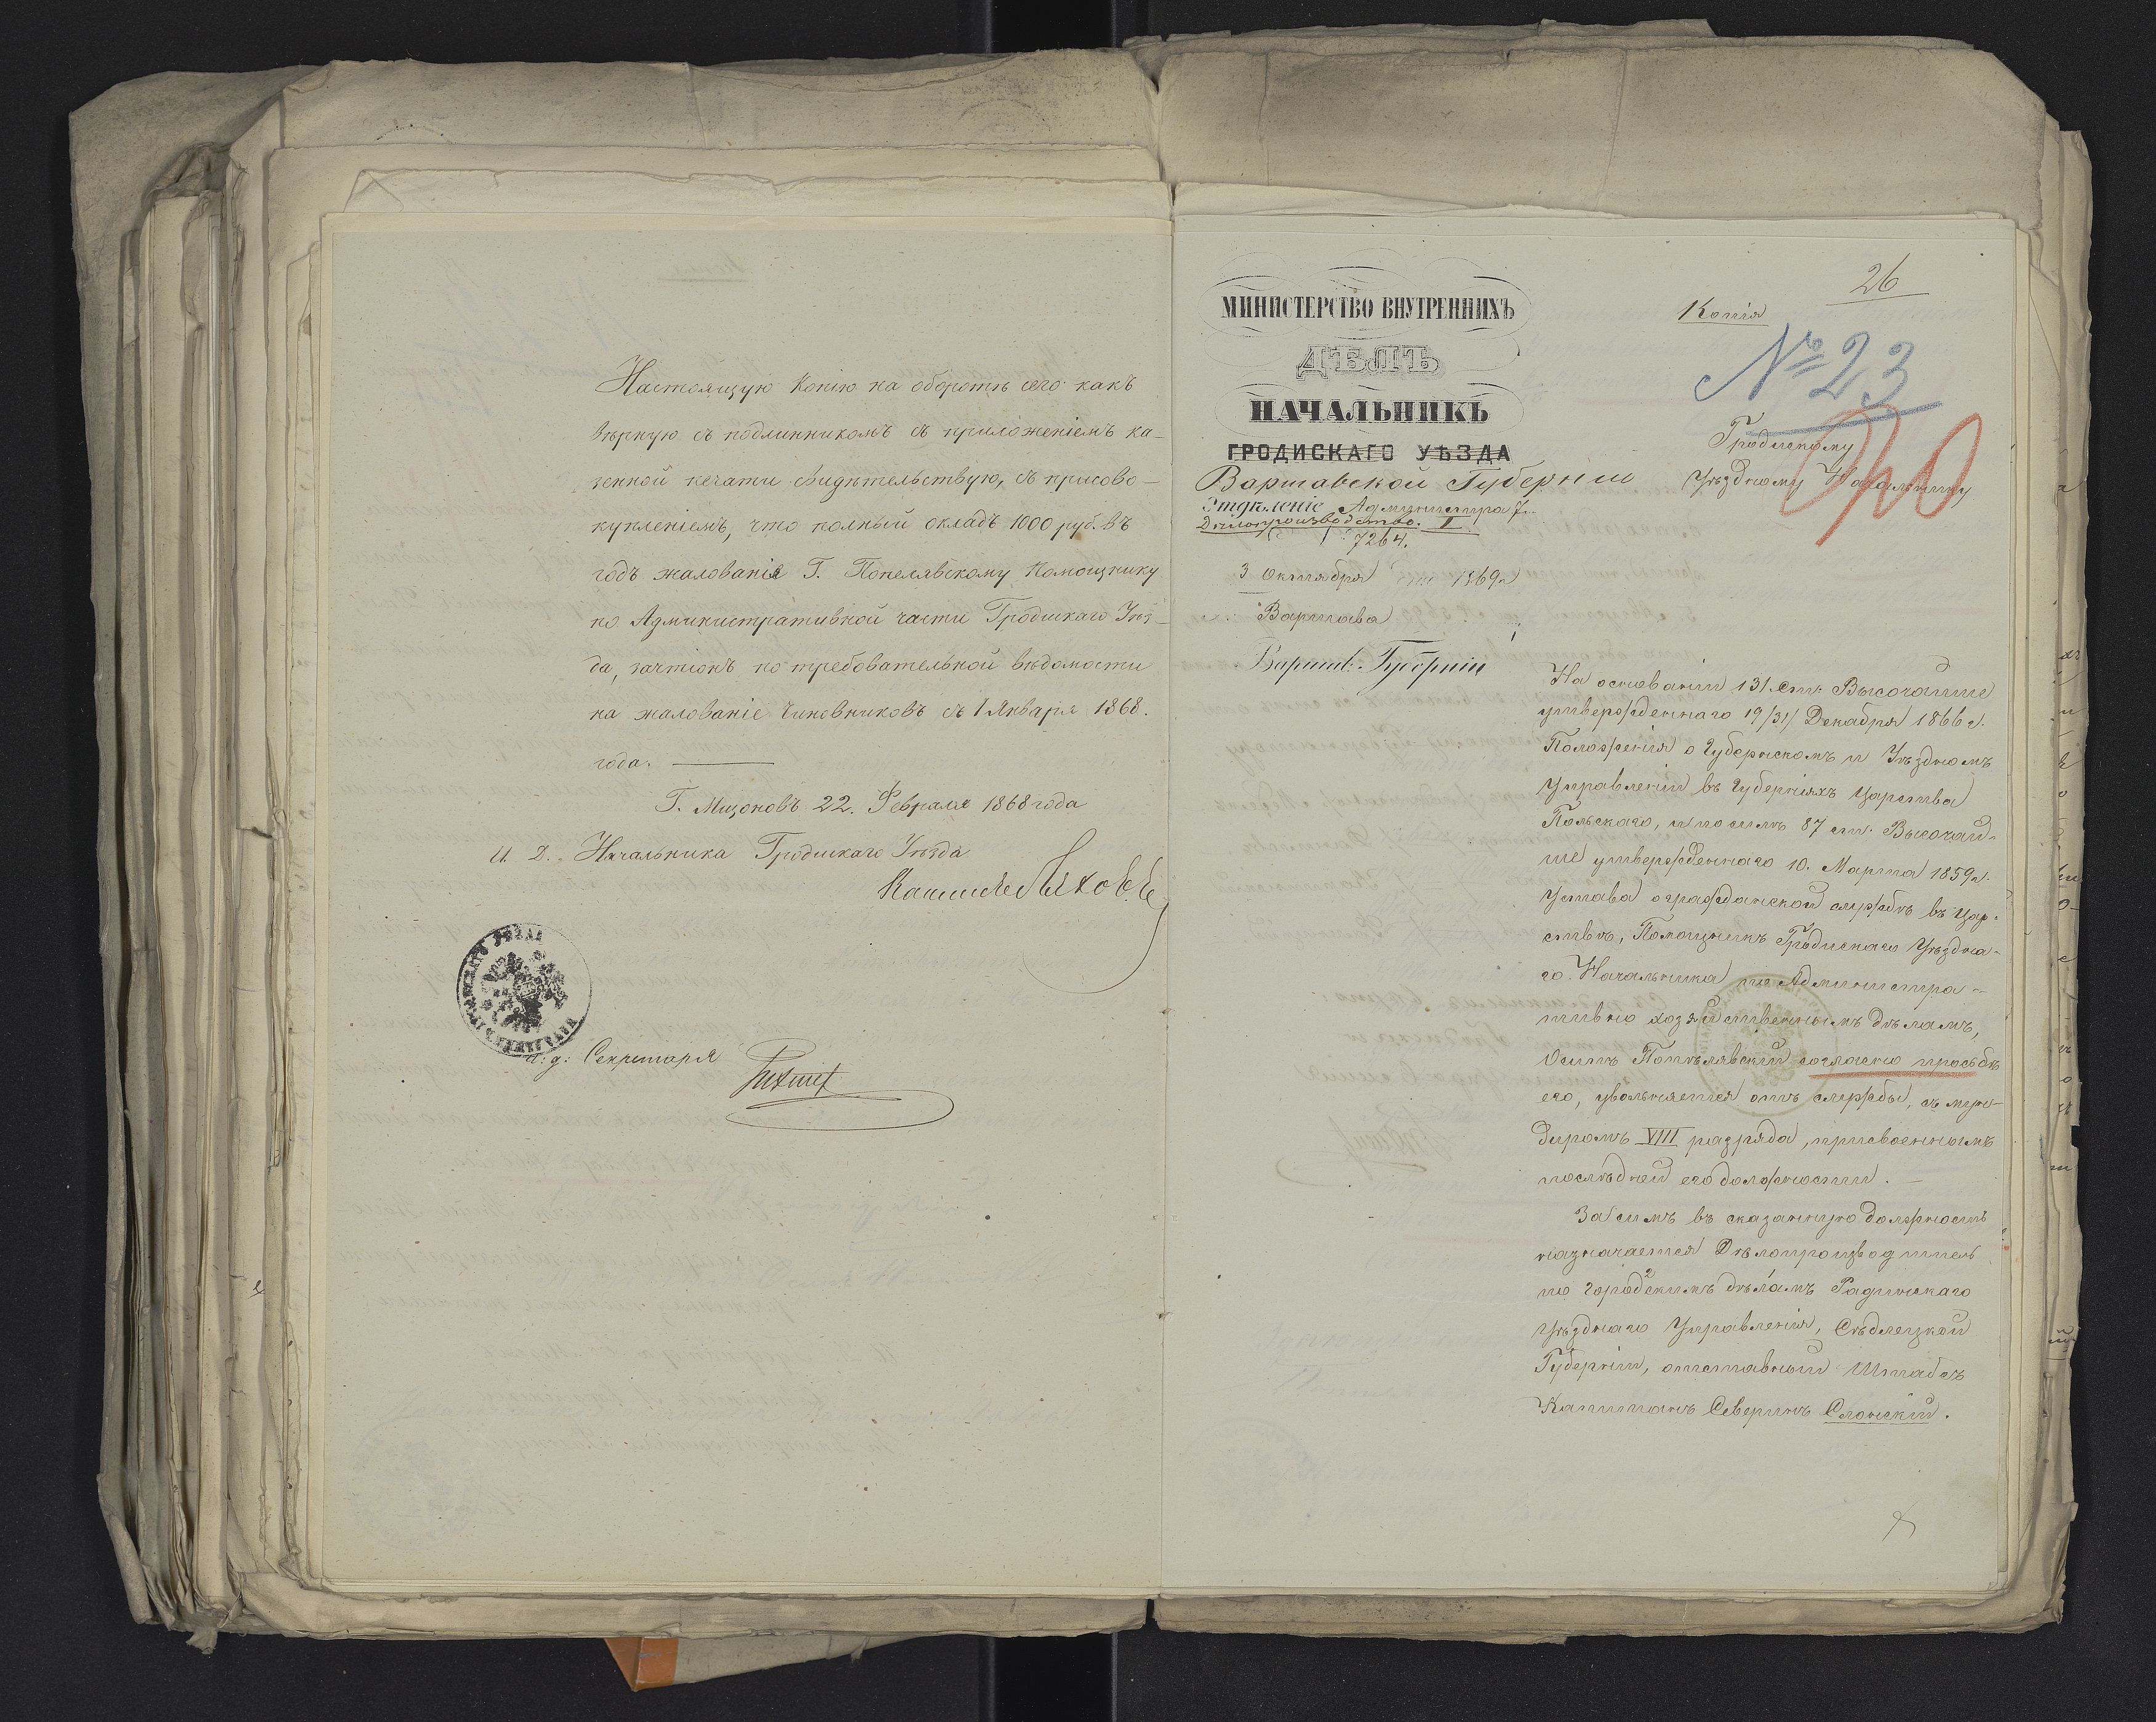 Настоящую Копію на оборотѣ сего какъ
вѣрную съ подлинникомъ съ приложеніемъ ка-
зенной печати свидѣтельствую, съ присово-
купленіемъ, что полный окладъ 1000 руб. въ
годъ жалованія Г. Попелявскому Помощнику
по Административной части Гродискаго Уѣз-
да, зачтіонъ по требовательной вѣдомости
на жалованіе Чиновниковъ съ 1 Января 1868.
года.
Г. Мщоновъ 22. Февраля 1868 года
И. Д. Начальника Гродискаго Уѣзда
и: д: Секретаря
26
Копія
№ 23
МИНИСТЕРСТВО ВНУТРЕННИХЪ
ДѢЛЪ
НАЧАЛЬНИКЪ
ГРОДИСКАГО УѢЗДА
Варшавской Губерніи
Отдѣленіе Администра
Дѣлопроизводство. I
7264.
3 Октября 1869 г
Варшава
Варшав: Губерніи
Гродискому
Уѣздному Начальнику
На основаніи 131 ст. Высочайше
утвержденнаго 19/31/ Декабря 1866 г.
Положенія о Губернскомъ и Уѣздномъ
Управленіи въ Губерніяхъ Царства
Польскаго, и по силѣ 87 ст. Высочай-
ше утвержденнаго 10. Марта 1859 г.
Устава о гражданской службѣ въ Цар-
ствѣ, Помощникъ Гродискаго Уѣздна-
го Начальника по Администра-
тивно хозяйственнымъ дѣламъ,
Осипъ Попѣлявскій согласно просьбѣ
его, увольняется отъ службы, съ мун-
диромъ VIII разряда, присвоеннымъ
послѣдней его должности. —
За симъ въ сказанную должность
назначается Дѣлопроизводитель
по городскимъ дѣламъ Радинскаго
Уѣзднаго Управленія, Сѣдлецкой
Губерніи, отставный Штабсъ
Капитанъ Северинъ Слонскій.